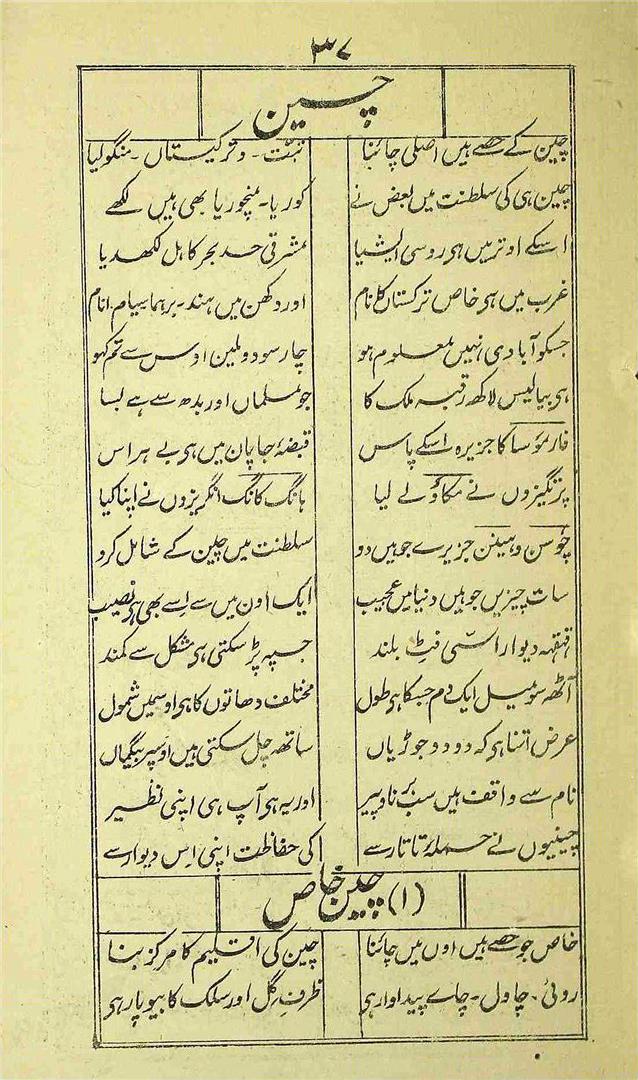 ۳۷
چین
چین کے حصے ہیں اصلی چائنا تبت - و ترکیستاں - منگولیا
چین ہی کی سلطنت میں بعض نے کوریا - منچوریا بھی ہیں لکھے
اسکے اوتر میں ہی روسی ایشیا مشرقی حد بحر کاہل لکھدیا
غرب میں ہی خاص ترکستاں کا نام اور دکھن میں ہند - برہما سیام انام
جسکو آبادی نہیں معلوم ہو چار سو دو ملین اوس سے تم کہو
ہی بیالیس لاکھ رقبہ ملک کا جو مسلماں اور بدھ سے ہے بسا
فارموسا کا جزیرہ اسکے پاس قبضۂ جاپان میں ہی بے ہراس
پرتگیزوں نے مکاؤ لے لیا ہانگ کانگ انگریزوں نے اپنا کیا
چوسن و ہینن جزیرے جو ہیں دو سلطنت میں چین کے شامل کرو
سات چیزیں جو ہیں دنیا میں عجیب ایک اون میں سے اِسے بھی ہی نصیب
قہقہہ دیوار اسّی فٹ بلند جسپہ پڑ سکتی ہی مشکل سے کمند
آٹھ سو میل ایکدم جسکا ہی طول مختلف دھاتوں کا ہی اوسمیں شمول
عرض اتنا ہی کہ دو دو جوڑیاں ساتھ چل سکتی ہیں اوسپر بیگماں
نام سے واقف ہیں سب برناو پیر اور یہ ہی آپ ہی اپنی نظیر
چینیوں نے حملۂ تاتار سے کی حفاظت اپنی اِس دیوار سے
(۱) چین خاص
خاص جو حصے ہیں اوں میں چائنا چین کی اقلیم کا مرکز بنا
روئی - چاول - چاے پیداوار ہی ظرفِ گل اور سلک کا بیوپار ہی